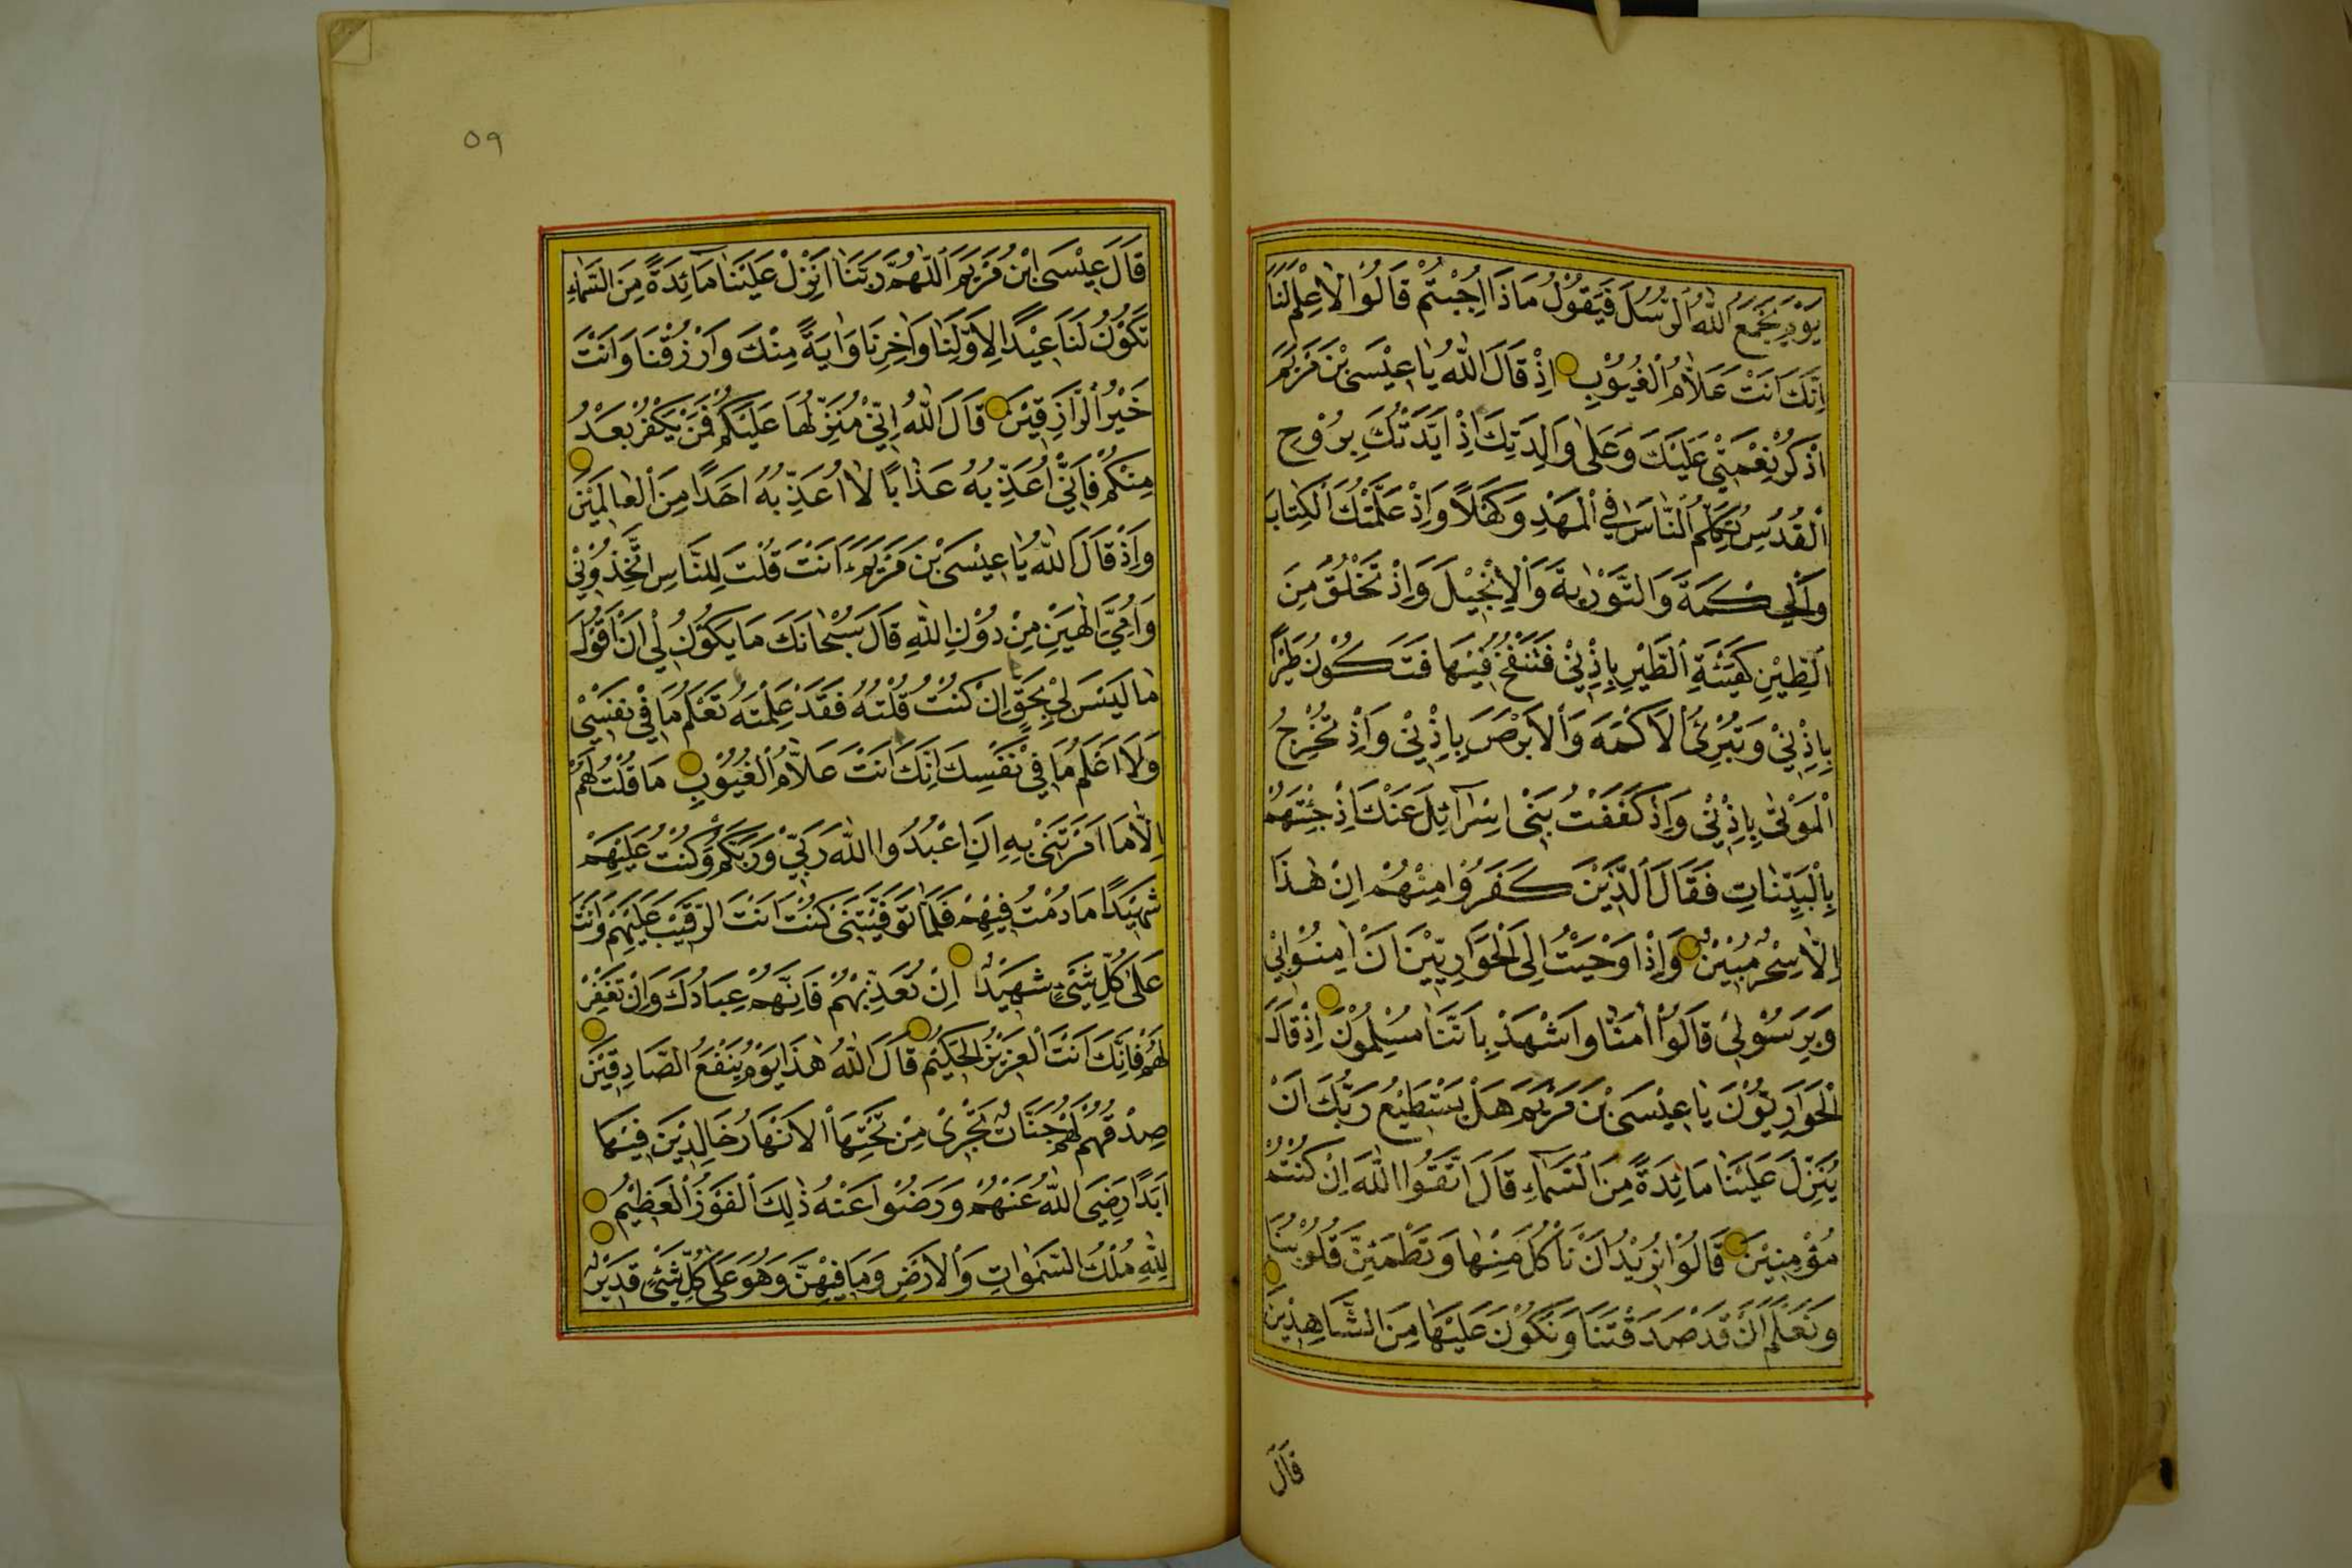 يَوْمَ يَجْمَعُ اللّٰهُ الرُّسُلَ فَيَقُولُ مَاذَا اُجِبْتُمْ قَالُوا لَاعِلْمَ لَنَا
اِنَّكَ اَنْتَ عَلَّامُ الْغُيُوْبِ اِذْ قَالَ اللّٰهُ يَا عِيْسَى بْنَ مَرْيَمَ
اذْكُرْ نِعْمَتِيْ عَلَيْكَ وَعَلٰى وَالِدَتِكَ اِذْ اَيَّدْتُكَ بِرُوْحِ
الْقُدُسِ تُكَلِّمُ النَّاسَ فِي الْمَهْدِ وَكَهْلًا وَاِذْ عَلَّمْتُكَ الْكِتَابَ
وَالْحِكْمَةَ وَالتَّوْرٰيةَ وَالْاِنْجِيْلَ وَاِذْ تَخْلُقُ مِنَ
الطِّيْنِ كَهَيْئَةِ الطَّيْرِ بِاِذْنِيْ فَتَنْفُخُ فِيْهَا فَتَكُوْنُ طَيْرًا
بِاِذْنِيْ وَتُبْرِئُ الْاَكْمَهَ وَالْاَبْرَصَ بِاِذْنِيْ وَاِذْ تُخْرِجُ
الْمَوْتٰى بِاِذْنِيْ وَاِذْ كَفَفْتُ بَنِيْ اِسْرَآئِلَ عَنْكَ اِذْ جِئْتَهُمْ
بِالْبَيِّنَاتِ فَقَالَ الَّذِيْنَ كَفَرُوْا مِنْهُمْ اِنْ هٰذَا
اِلَّا سِحْرٌ مُبِيْنٌ وَاِذْ اَوْحَيْتُ اِلَى الْحَوَارِيّيْنَ اَنْ اٰمِنُوْا بِيْ
وَبِرَسُوْلِيْ قَالُوْا اٰمَنَّا وَاشْهَدْ بِاَنَّنَا مُسْلِمُوْنَ اِذْ قَالَ
الْحَوَارِيُّوْنَ يَا عِيْسَى بْنَ مَرْيَمَ هَلْ يَسْتَطِيْعُ رَبُّكَ اَنْ
يُنَزِّلَ عَلَيْنَا مَائِدَةً مِنَ السَّمَآءِ قَالَ اتَّقُوا اللّٰهَ اِنْ كُنْتُمْ
مُؤْمِنِيْنَ قَالُوْا نُرِيْدُ اَنْ نَاْكُلَ مِنْهَا وَتَطْمَئِنَّ قُلُوْبُنَا
وَنَعْلَمَ اَنْ قَدْ صَدَقْتَنَا وَنَكُوْنَ عَلَيْهَا مِنَ الشَّاهِدِيْنَ
قَالَ
٥٩
قَالَ عِيْسَى ابْنُ مَرْيَمَ اللّٰهُمَّ رَبَّنَا اَنْزِلْ عَلَيْنَا مَائِدَةً مِنَ السَّمَاءِ
تَكُوْنُ لَنَا عِيْدًا لِاَوَّلِنَا وَاٰخِرِنَا وَاٰيَةً مِنْكَ وَارْزُقْنَا وَاَنْتَ
خَيْرُ الرَّازِقِيْنَ قَالَ اللّٰهُ اِنِّيْ مُنَزِّلُهَا عَلَيْكُمْ فَمَنْ يَكْفُرْ بَعْدُ
مِنْكُمْ فَاِنِّيْ اُعَذِّبُهُ عَذَابًا لَا اُعَذِّبُهُ اَحَدًا مِنَ الْعَالَمِيْنَ
وَاِذْ قَالَ اللّٰهُ يَا عِيْسَى بْنَ مَرْيَمَ ءَاَنْتَ قُلْتَ لِلنَّاسِ اتَّخِذُوْنِيْ
وَاُمِّيَ اِلٰهَيْنِ مِنْ دُوْنِ اللّٰهِ قَالَ سُبْحَانَكَ مَا يَكُوْنُ لِيْ اَنْ اَقُوْلَ
مَا لَيْسَ لِيْ بِحَقٍّ اِنْ كُنْتُ قُلْتُهُ فَقَدْ عَلِمْتَهُ تَعْلَمُ مَا فِيْ نَفْسِيْ
وَلَا اَعْلَمُ مَا فِيْ نَفْسِكَ اِنَّكَ اَنْتَ عَلَّامُ الْغُيُوْبِ مَا قُلْتُ لَهُمْ
اِلَّا مَا اَمَرْتَنِيْ بِهِ اَنِ اعْبُدُوا اللّٰهَ رَبِّيْ وَرَبَّكُمْ وَكُنْتُ عَلَيْهِمْ
شَهِيْدًا مَا دُمْتُ فِيْهِمْ فَلَمَّا تَوَفَّيْتَنِيْ كُنْتَ اَنْتَ الرَّقِيْبَ عَلَيْهِمْ وَاَنْتَ
عَلٰى كُلِّ شَيْءٍ شَهِيْدٌ اِنْ تُعَذِّبْهُمْ فَاِنَّهُمْ عِبَادُكَ وَاِنْ تَغْفِرْ
لَهُمْ فَاِنَّكَ اَنْتَ الْعَزِيْزُ الْحَكِيْمُ قَالَ اللّٰهُ هٰذَا يَوْمُ يَنْفَعُ الصَّادِقِيْنَ
صِدْقُهُمْ لَهُمْ جَنَّاتٌ تَجْرِيْ مِنْ تَحْتِهَا الْاَنْهَارُ خَالِدِيْنَ فِيْهَا
اَبَدًا رَضِيَ اللّٰهُ عَنْهُمْ وَرَضُوْا عَنْهُ ذٰلِكَ الْفَوْزُ الْعَظِيْمُ
لِلّٰهِ مُلْكُ السَّمٰوَاتِ وَالْاَرْضِ وَمَا فِيْهِنَّ وَهُوَ عَلٰى كُلِّ شَيْءٍ قَدِيْرٌ